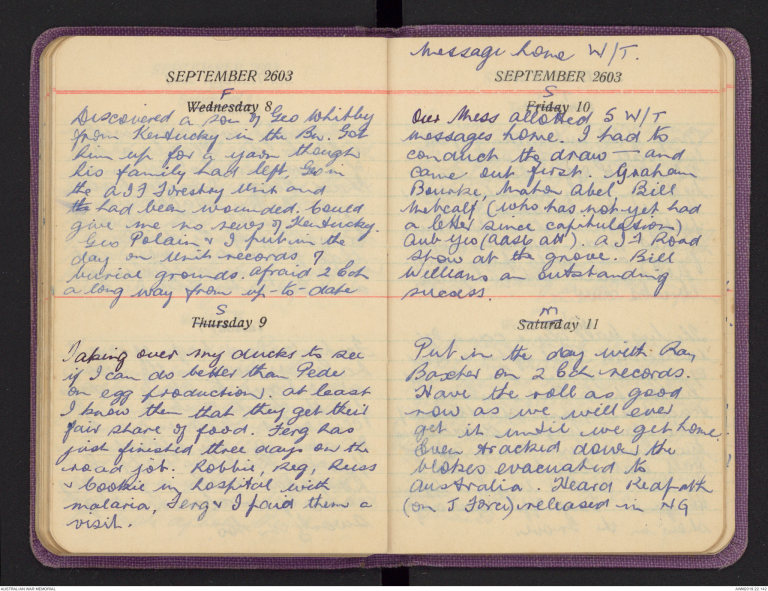 SEPTEMBER 2603
F
Wednesday 8
Discovered a son of Geo Whitby
from Kentucky in the Bn. Got
him up for a yarn though
his family had left, Geo in
the AIF Forestry Unit and
had been wounded. Could
give me no news of Kentucky.
Geo Polain & I put in the
day on Unit records, &
burial grounds. Afraid 2 Ech
a long way from up-to-date
S
Thursday 9
Taking over my ducks to see
if I can do better than Fede
on egg production. At least
I know then that they get their
fair share of food. Ferg has
just finished three days on the
road job. Robbie, Reg, Russ
& Cookie in hospital with
malaria, Ferg & I paid them a
visit.
Message home W/T.
SEPTEMBER 2603
S
Friday 10
Our Mess allotted 5 W/T
messages home. I had to
conduct the draw - and
came out first. Graham
Bourke, Mahon Abel, Bill
Metcalf (who has not yet had
a letter since capitulation)
Aub Yeo (Aast Att). AIF Road
Show at the grove. Bill
Williams an outstanding
success.
M
Saturday 11
Put in the day with Ray
Baxter on 2 Ech records.
Have the roll as good
now as we will ever
get it until we get home.
Even tracked down the
blokes evacuated to
Australia. Heard
(on J Force) released in NG
AUSTRALIAN WAR MEMORIAL
AWM2019.22.142